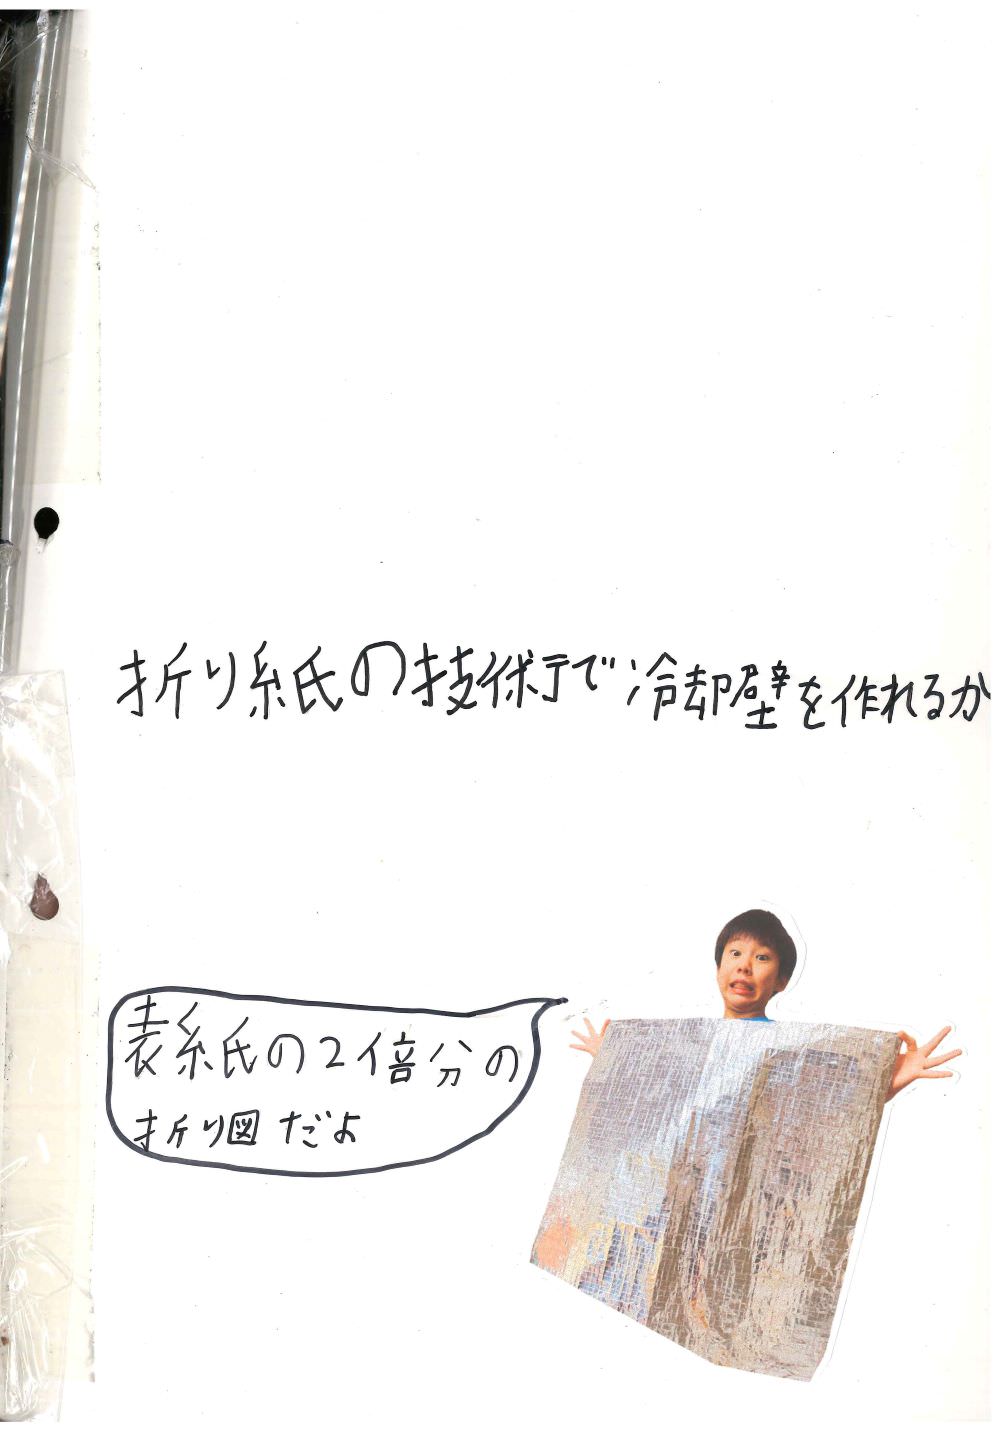 折り紙の技術で冷却壁を作れるか
表紙の2倍分の
折り図だよ